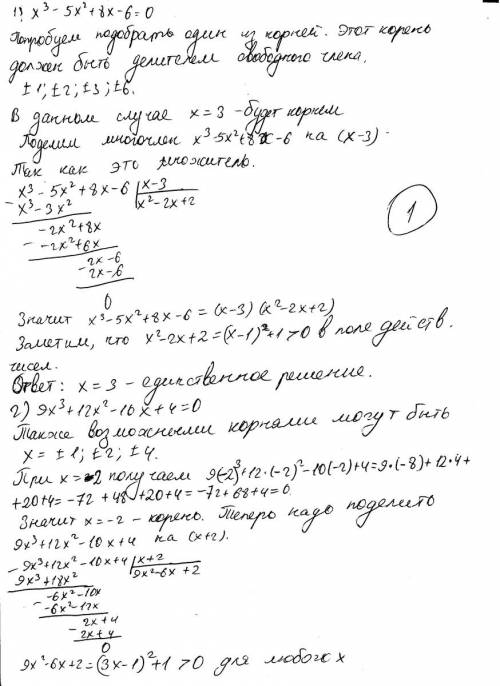 1) x³ - 5x² + 8x - 6 = 0
Попробуем подобрать один из корней. Этот корень
должен быть делителем свободного члена.
± 1; ± 2; ± 3; ± 6.
В данном случае x = 3 - будет корнем
Поделим многочлен x³-5x²+8x-6 на (x-3)
Так как это множитель.
x³ - 5x² + 8x - 6 | x-3
- x³ - 3x² | x² - 2x + 2
-2x² + 8x
- -2x² + 6x
2x - 6
- 2x - 6
0
1
Значит x³-5x²+8x-6 = (x-3)(x²-2x+2)
Заметим, что x²-2x+2 = (x-1)²+1 > 0 в поле действ.
чисел.
Ответ: x = 3 - единственное решение.
2) 9x³ + 12x² - 10x + 4 = 0
Также возможными корнями могут быть
x = ± 1; ± 2; ± 4.
При x = -2 получаем 9(-2)³+12·(-2)²-10(-2)+4=9·(-8)+12·4+
+20+4 = -72 + 48 +20+4 = -72+68+4=0.
Значит x = -2 - корень. Теперь надо поделить
9x³+12x²-10x+4 на (x+2).
- 9x³+12x²-10x+4 | x+2
9x³+18x² | 9x²-6x+2
-6x²-10x
- -6x²-12x
2x+4
- 2x+4
0
9x²-6x+2 = (3x-1)²+1 > 0 для любого x